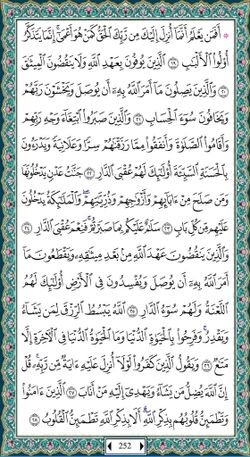 ۞ أَفَمَن يَعْلَمُ أَنَّمَا أُنزِلَ إِلَيْكَ مِن رَّبِّكَ الْحَقُّ كَمَنْ هُوَ أَعْمَىٰ إِنَّمَا يَتَذَكَّرُ
أُولُوا الْأَلْبَابِ ١٩ الَّذِينَ يُوفُونَ بِعَهْدِ اللَّهِ وَلَا يَنقُضُونَ الْمِيثَاقَ
٢٠ وَالَّذِينَ يَصِلُونَ مَا أَمَرَ اللَّهُ بِهِ أَن يُوصَلَ وَيَخْشَوْنَ رَبَّهُمْ
وَيَخَافُونَ سُوءَ الْحِسَابِ ٢١ وَالَّذِينَ صَبَرُوا ابْتِغَاءَ وَجْهِ رَبِّهِمْ
وَأَقَامُوا الصَّلَاةَ وَأَنفَقُوا مِمَّا رَزَقْنَاهُمْ سِرًّا وَعَلَانِيَةً وَيَدْرَءُونَ
بِالْحَسَنَةِ السَّيِّئَةَ أُولَٰئِكَ لَهُمْ عُقْبَى الدَّارِ ٢٢ جَنَّاتُ عَدْنٍ يَدْخُلُونَهَا
وَمَن صَلَحَ مِنْ آبَائِهِمْ وَأَزْوَاجِهِمْ وَذُرِّيَّاتِهِمْ ۖ وَالْمَلَائِكَةُ يَدْخُلُونَ
عَلَيْهِم مِّن كُلِّ بَابٍ ٢٣ سَلَامٌ عَلَيْكُم بِمَا صَبَرْتُمْ ۚ فَنِعْمَ عُقْبَى الدَّارِ ٢٤
وَالَّذِينَ يَنقُضُونَ عَهْدَ اللَّهِ مِن بَعْدِ مِيثَاقِهِ وَيَقْطَعُونَ مَا
أَمَرَ اللَّهُ بِهِ أَن يُوصَلَ وَيُفْسِدُونَ فِي الْأَرْضِ أُولَٰئِكَ لَهُمُ
اللَّعْنَةُ وَلَهُمْ سُوءُ الدَّارِ ٢٥ اللَّهُ يَبْسُطُ الرِّزْقَ لِمَن يَشَاءُ
وَيَقْدِرُ ۚ وَفَرِحُوا بِالْحَيَاةِ الدُّنْيَا وَمَا الْحَيَاةُ الدُّنْيَا فِي الْآخِرَةِ إِلَّا
مَتَاعٌ ٢٦ وَيَقُولُ الَّذِينَ كَفَرُوا لَوْلَا أُنزِلَ عَلَيْهِ آيَةٌ مِّن رَّبِّهِ ۗ قُلْ
إِنَّ اللَّهَ يُضِلُّ مَن يَشَاءُ وَيَهْدِي إِلَيْهِ مَنْ أَنَابَ ٢٧ الَّذِينَ آمَنُوا
وَتَطْمَئِنُّ قُلُوبُهُم بِذِكْرِ اللَّهِ ۗ أَلَا بِذِكْرِ اللَّهِ تَطْمَئِنُّ الْقُلُوبُ ٢٨
252